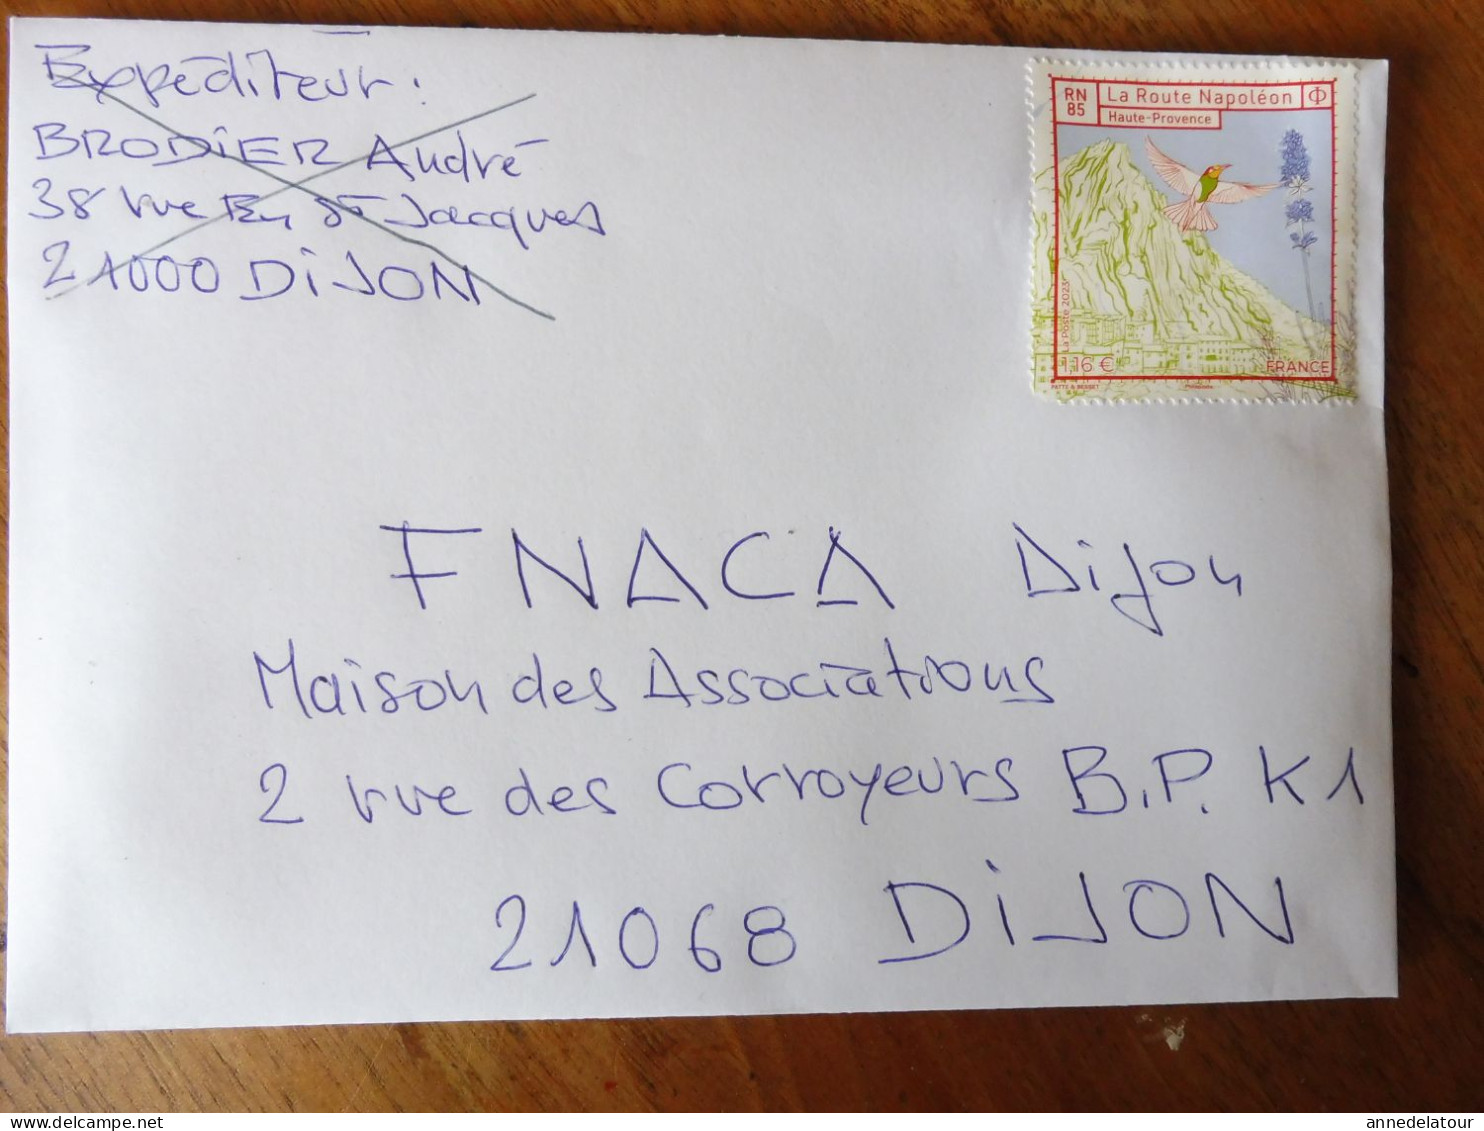 Expéditeur :
BRODIER André
38 rue Bg St Jacques
21000 DIJON
RN 85
La Route Napoléon
Haute-Provence
La Poste 2023
1,16 €
FRANCE
PATTE & BESSET
Philaposte
FNACA Dijon
Maison des Associations
2 rue des Corroyeurs B.P. K1
21068 DIJON
delcampe.net
annedelatour